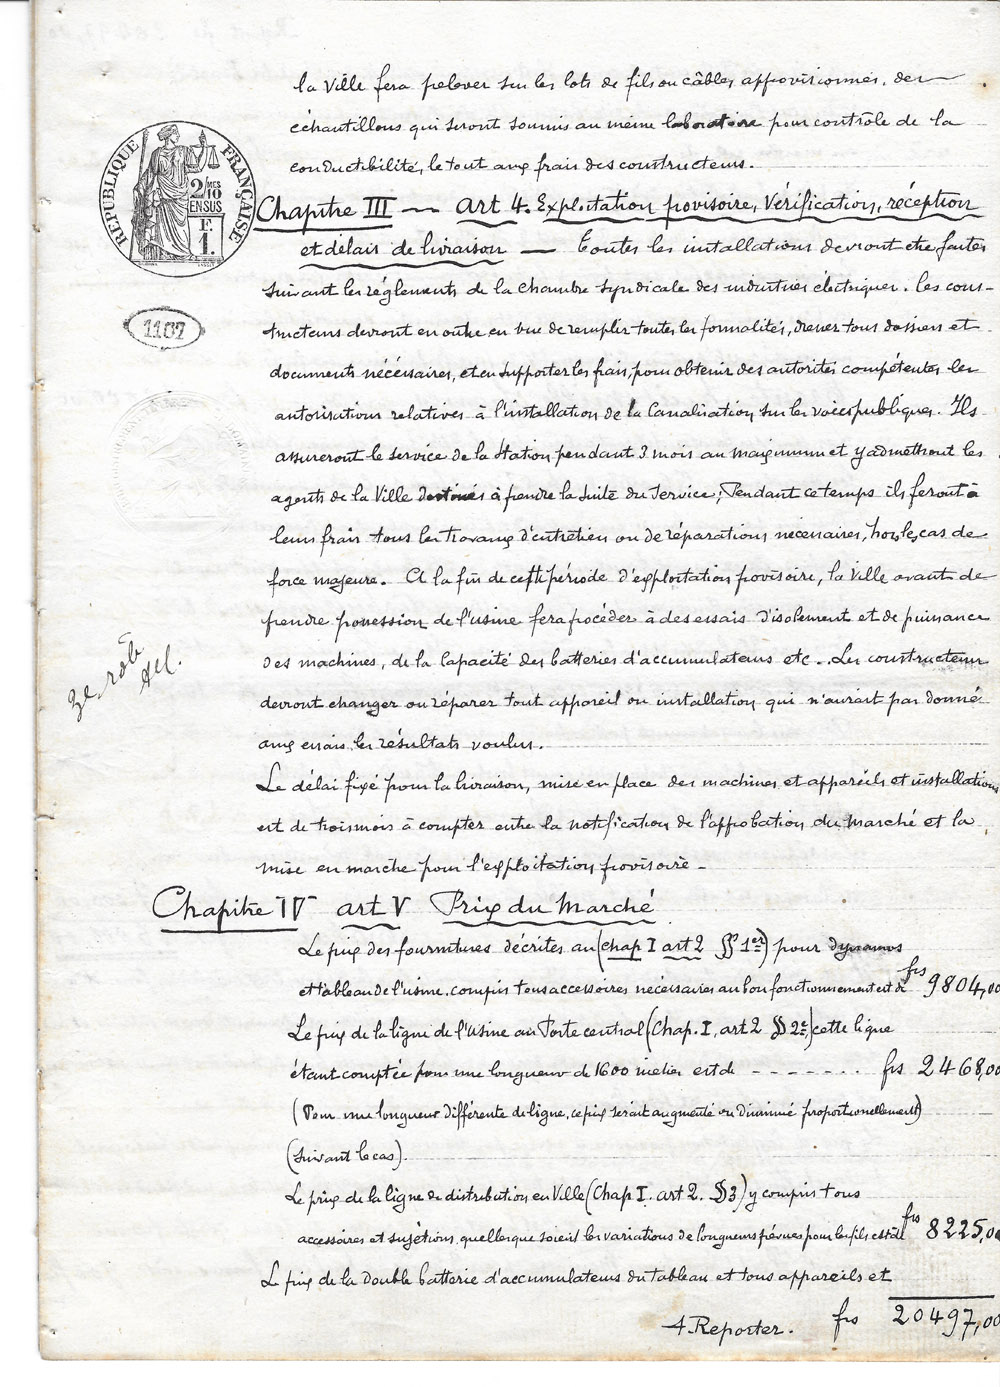 la Ville fera prelever sur les lots de fils ou câbles approvisionnés, des
échantillons qui seront soumis au même laboratoire pour contrôle de la
conductibilité, le tout aux frais des constructeurs.
RÉPUBLIQUE FRANÇAISE
2/10 MES
EN SUS
1 F.
Chapitre III — Art 4. Exploitation provisoire, Vérification, réception
et délais de livraison — Toutes les installations devront être faites
suivant les réglements de la chambre syndicale des industries électriques. Les cons-
1107
tructeurs devront en outre en vue de remplir toutes les formalités, dresser tous dossiers et
documents nécéssaires, et en supporter les frais, pour obtenir des autorités compétentes les
autorisations relatives à l'installation de la Canalisation sur les voies publiques. Ils
assureront le service de la Station pendant 3 mois au maximum et y admettront les
agents de la Ville destinés à prendre la suite du Service; Pendant ce temps ils feront à
leurs frais tous les travaux d'entretien ou de réparations nécessaires, hors le cas de
force majeure. A la fin de cette période d'exploitation provisoire, la Ville avant de
prendre possession de l'usine fera procéder à des essais d'isolement et de puissance
des machines, de la capacité des batteries d'accumulateurs etc.. Les constructeurs
devront changer ou réparer tout appareil ou installation qui n'aurait pas donné
aux essais les résultats voulus.
Le délai fixé pour la livraison, mise en place des machines et appareils et installations
est de trois mois à compter entre la notification de l'approbation du Marché et la
mise en marche pour l'exploitation provisoire -
Chapitre IV art V Prix du Marché
Le prix des fournitures décrites au (chap I art 2 §§ 1er) pour dynamos
et tableau de l'usine, compris tous accessoires nécessaires au bon fonctionnement est de frs 9804,00
Le prix de la ligne de l'Usine au Poste central (Chap. I, art 2 § 2e) cette ligne
étant comptée pour une longueur de 1600 mètres est de - - - - - - - . frs 2468,00
(Pour une longueur différente de ligne, ce prix serait augmenté ou diminué proportionnellement)
(suivant le cas).
Le prix de la ligne de distribution en Ville (Chap. I. art 2. § 3) y compris tous
accessoires et sujétions, quelles que soient les variations de longueurs prévues pour les fils est de frs 8225,00
Le prix de la double batterie d'accumulateurs du tableau et tous appareils et
A Reporter. frs 20497,00